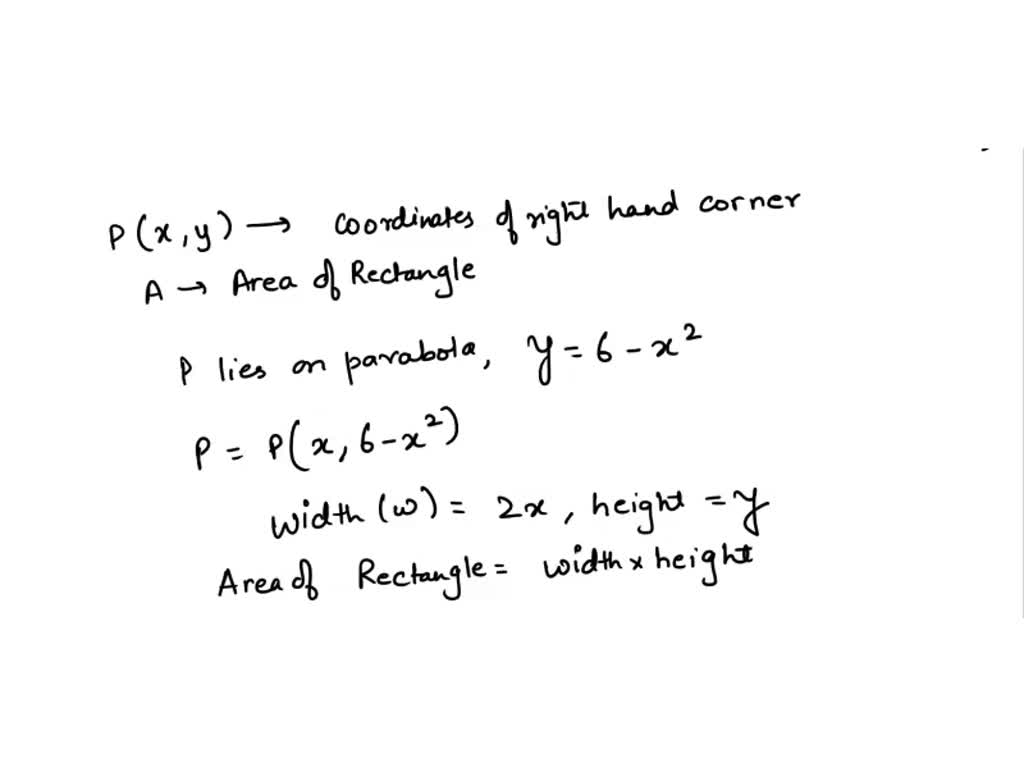 P(x,y) → coordinates of right hand corner
A → Area of Rectangle
P lies on parabola, y = 6 - x²
P = P(x, 6-x²)
width (w) = 2x, height = y
Area of Rectangle = width × height